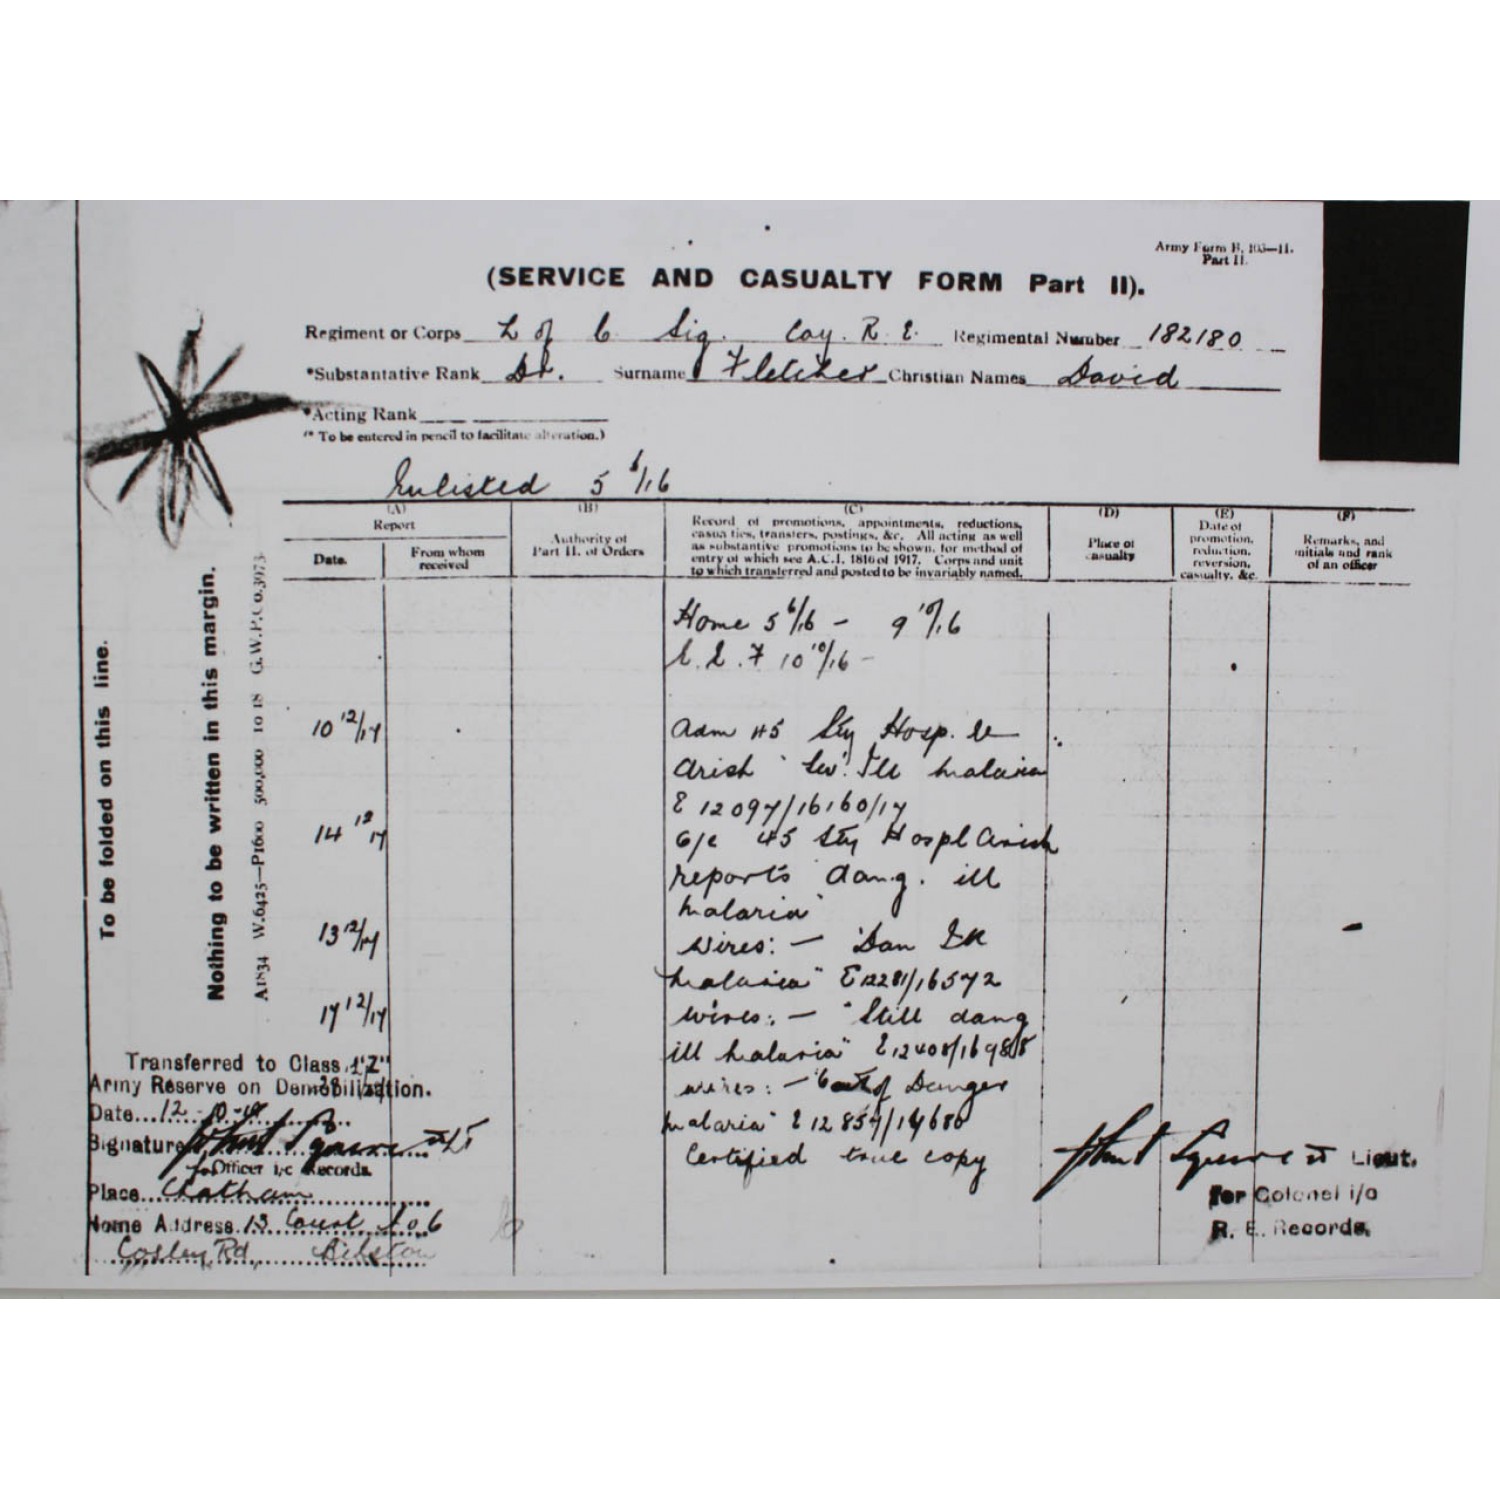 Army Form B. 103—11.
Part II.
(SERVICE AND CASUALTY FORM Part II).
Regiment or Corps L of C. Sig. Coy. R. E. Regimental Number 182180
*Substantative Rank Dr. Surname Fletcher Christian Names David
*Acting Rank
(* To be entered in pencil to facilitate alteration.)
Enlisted 5 6/16
(A)
Report
Date.
From whom
received
(B)
Authority of
Part II. of Orders
(C)
Record of promotions, appointments, reductions,
casualties, transfers, postings, &c. All acting as well
as substantive promotions to be shown, for method of
entry of which see A.C.I. 1816 of 1917. Corps and unit
to which transferred and posted to be invariably named.
(D)
Place of
casualty
(E)
Date of
promotion,
reduction,
reversion,
casualty, &c.
(F)
Remarks, and
initials and rank
of an officer
To be folded on this line.
Nothing to be written in this margin.
A1834 W.6425—P1600 500,000 10 18 G.W.P.Co.3073
Home 5 6/16 – 9 10/16
E.E.F 10 10/16 –
10 12/17 Adm 45 Sty Hosp. El
Arish "Sev. Ill Malaria
E 12097/16160/17
14 12/17 O/C 45 Sty Hospl Arish
reports "dang. ill
Malaria"
13 12/17 Wires: – "Dan Ill
Malaria" E12281/16572
17 12/17 Wires: – "Still dang
ill Malaria" E12408/16988
Wires: – "Out of Danger
Malaria" E 12857/17680
Certified true copy
Lieut.
for Colonel i/c
R. E. Records.
Transferred to Class "Z"
Army Reserve on Demobilization.
Date 12-10-19
Signature
for Officer i/c Records.
Place Chatham
Home Address 13 Court No 6
Cosley Rd, Bilston